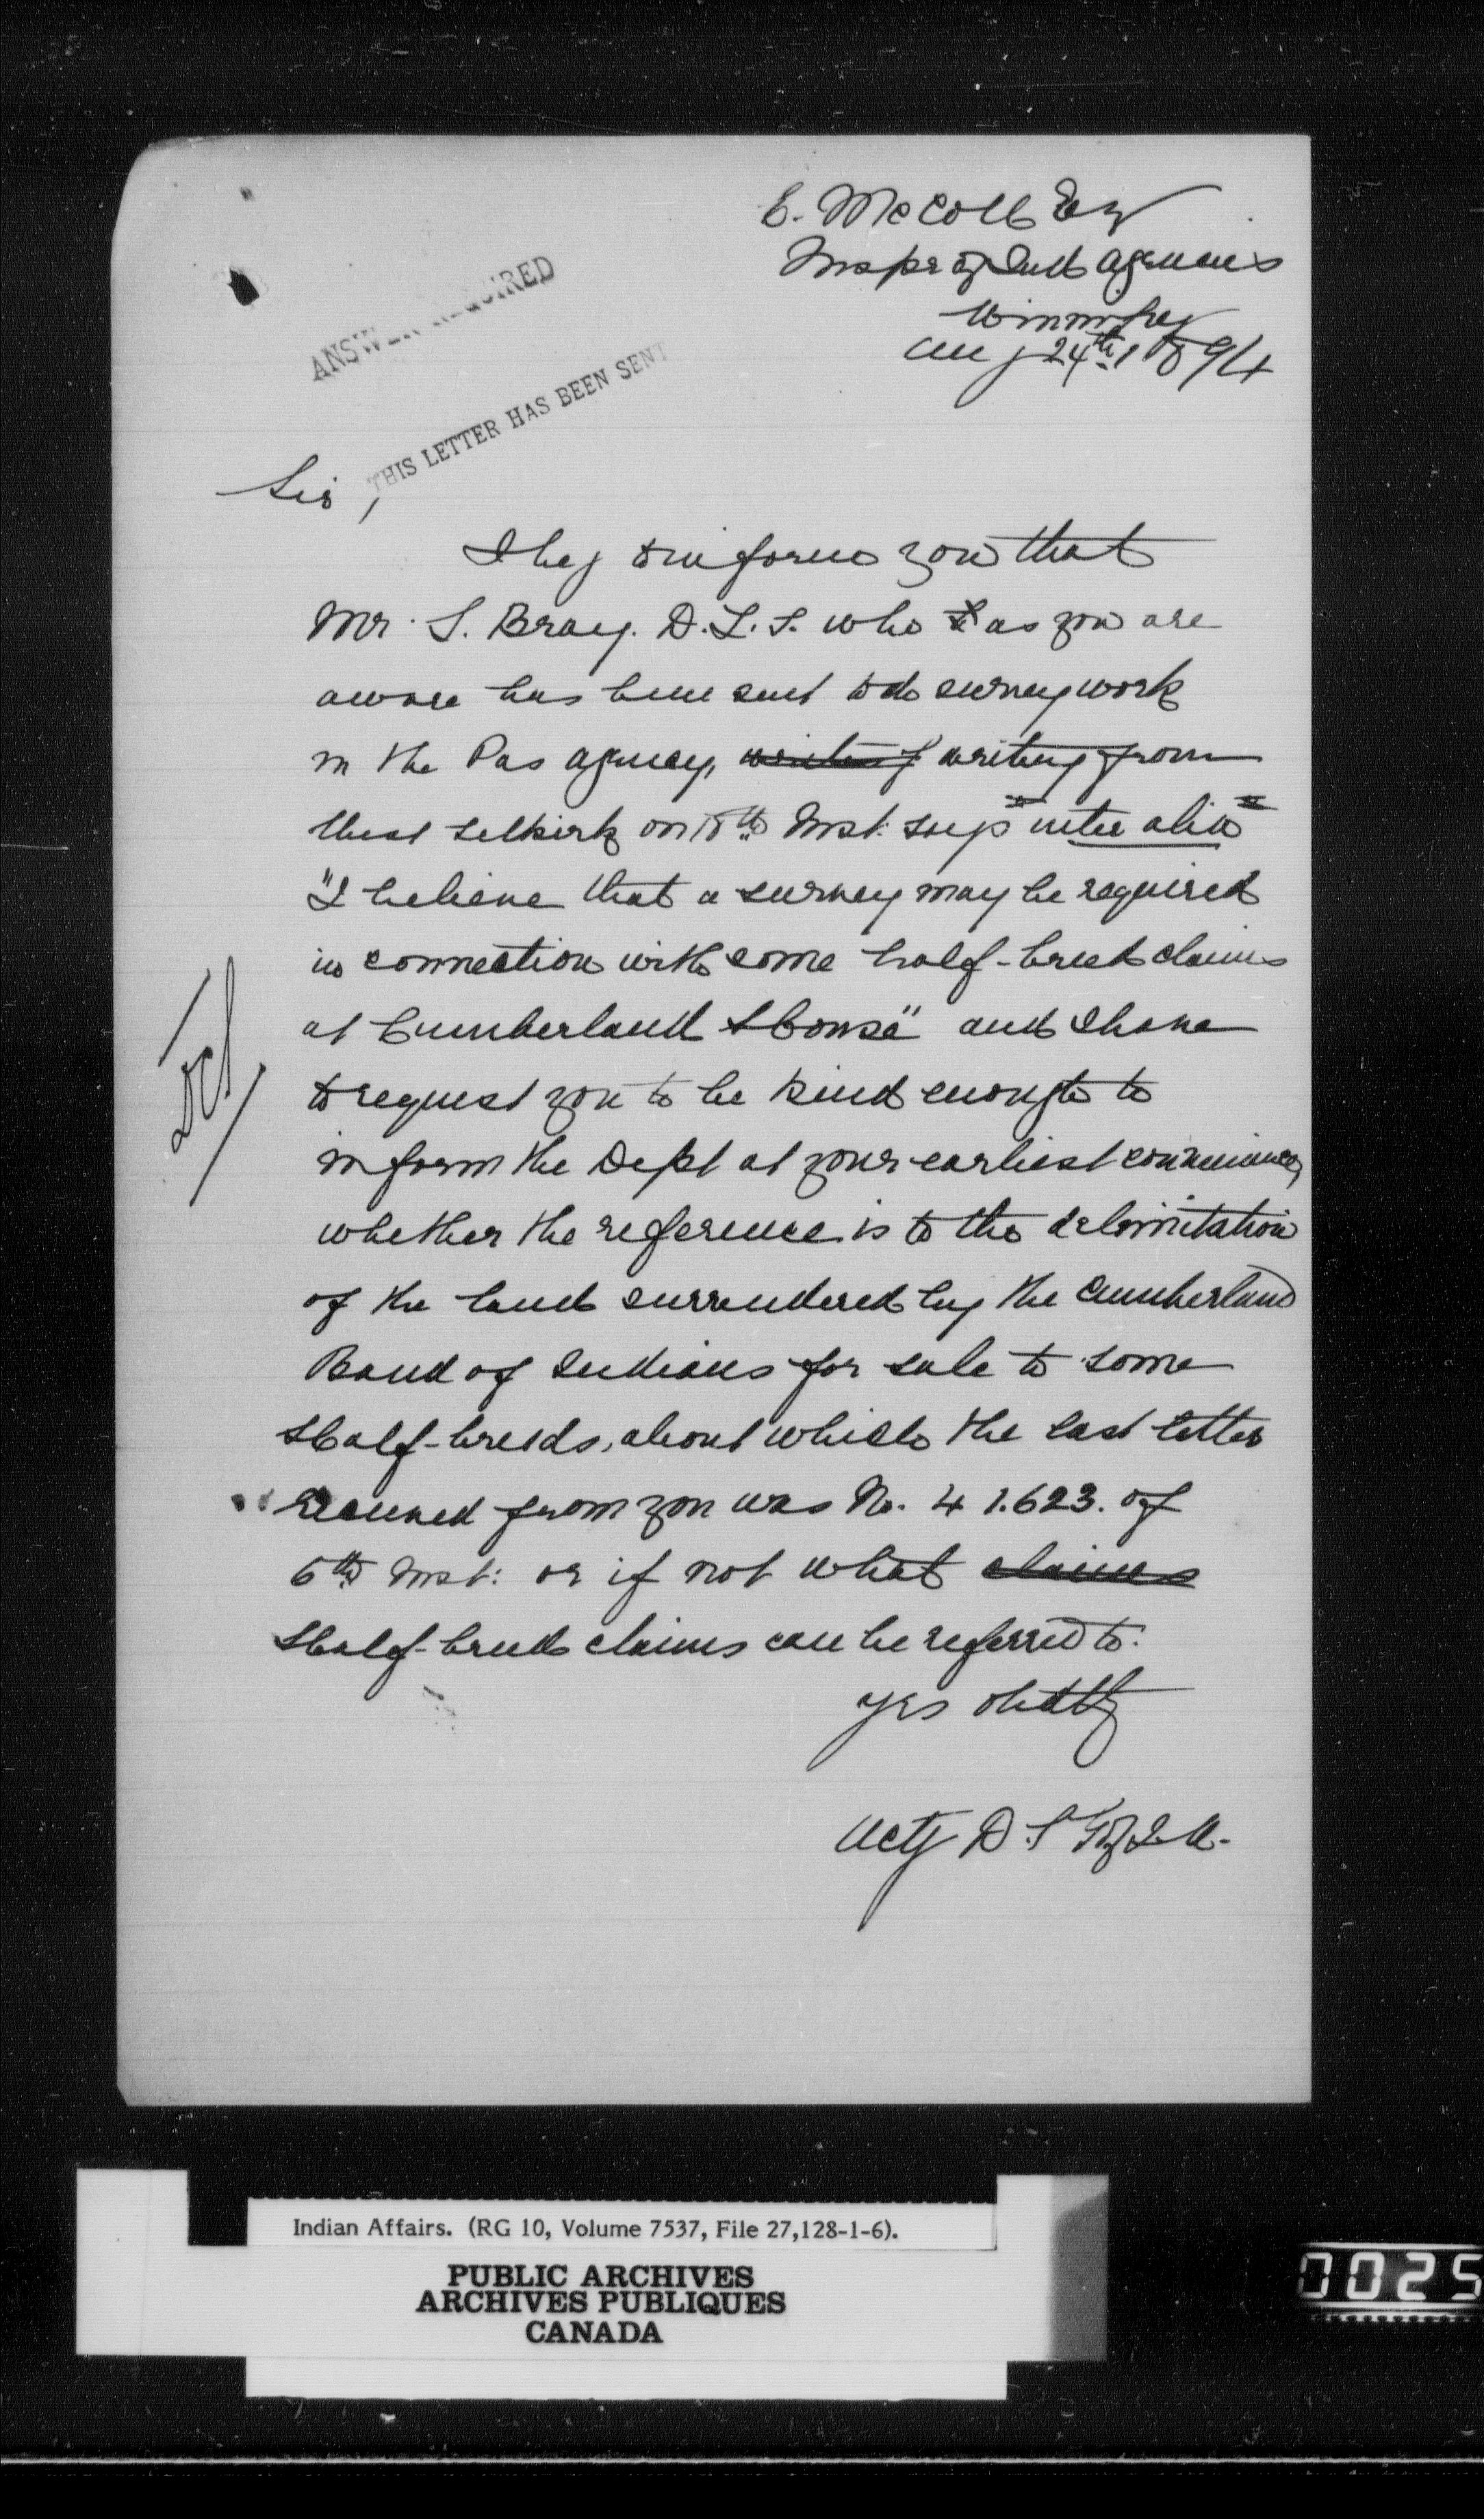 E. McColl Esq
Inspr of Ind Agencies
Winnipeg
Aug 24th 1894
ANSWER REQUIRED
THIS LETTER HAS BEEN SENT
Sir,
I beg to inform you that
Mr. S. Bray. D.L.S. who as you are
aware has been sent to do survey work
in the Pas Agency, writing from
West Selkirk on 18th Inst. says "inter alia"
"I believe that a survey may be required
in connection with some half-breed claims
at Cumberland House" and I have
to request you to be kind enough to
inform the Dept at your earliest convenience,
whether the reference is to the delimitation
of the land surrendered by the Cumberland
Band of Indians for sale to some
Half-breeds, about which the last letter
received from you was No. 41.623. of
6th Inst: or if not what claims
Half-breed claims can be referred to.
Yrs obdtly
Actg D.S.G. of I.A.
Indian Affairs. (RG 10, Volume 7537, File 27,128-1-6).
PUBLIC ARCHIVES
ARCHIVES PUBLIQUES
CANADA
0025